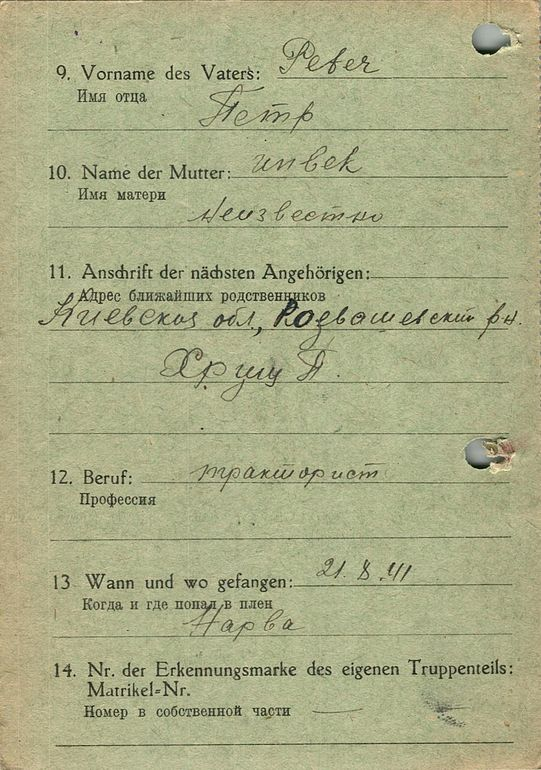 9. Vorname des Vaters: Peter
Имя отца
Петр
10. Name der Mutter:
Имя матери
неизвестно
11. Anschrift der nächsten Angehörigen:
Адрес ближайших родственников
Киевская обл., рн.
Хрущ П.
12. Beruf: тракторист
Профессия
13 Wann und wo gefangen: 21.8.41
Когда и где попал в плен
Нарва
14. Nr. der Erkennungsmarke des eigenen Truppenteils:
Matrikel=Nr.
Номер в собственной части —